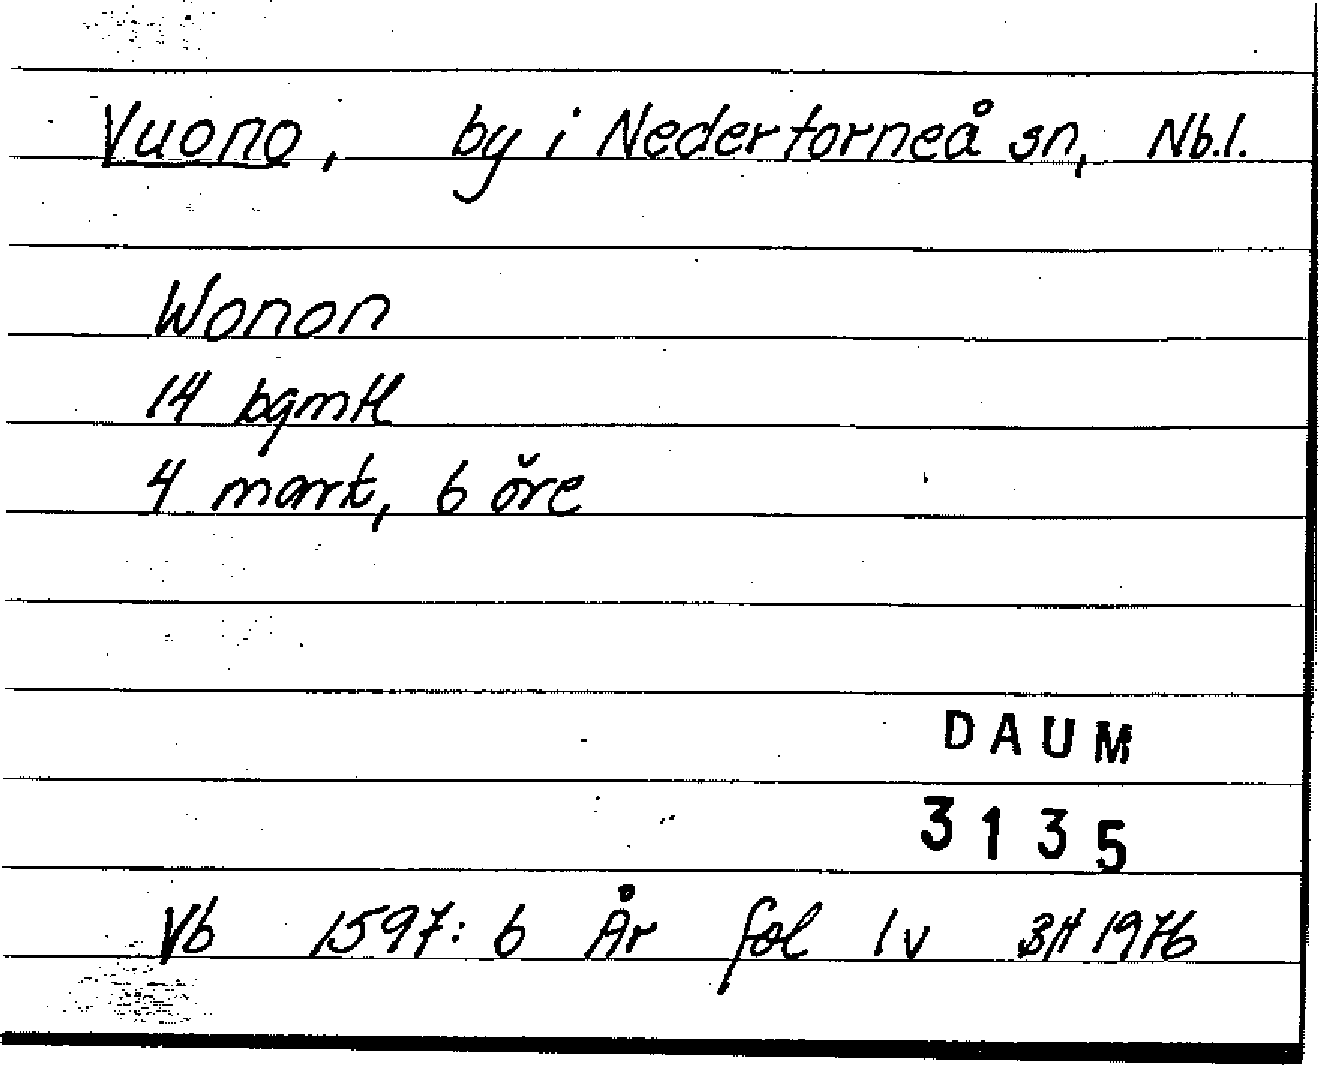 Vuono, by i Nedertorneå sn, Nb.l.
Wonon
14 bgmtl
4 mark, 6 öre
DAUM
3135
Vb 1597: 6 År fol 1v 1976